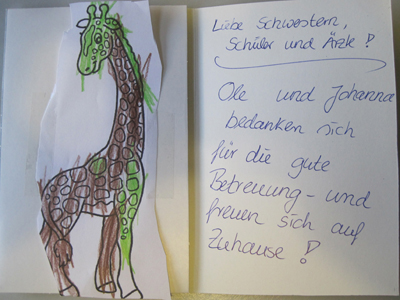 Liebe Schwestern,
Schüler und Ärzte !
Ole und Johanna
bedanken sich
für die gute
Betreuung - und
freuen sich auf
Zuhause !